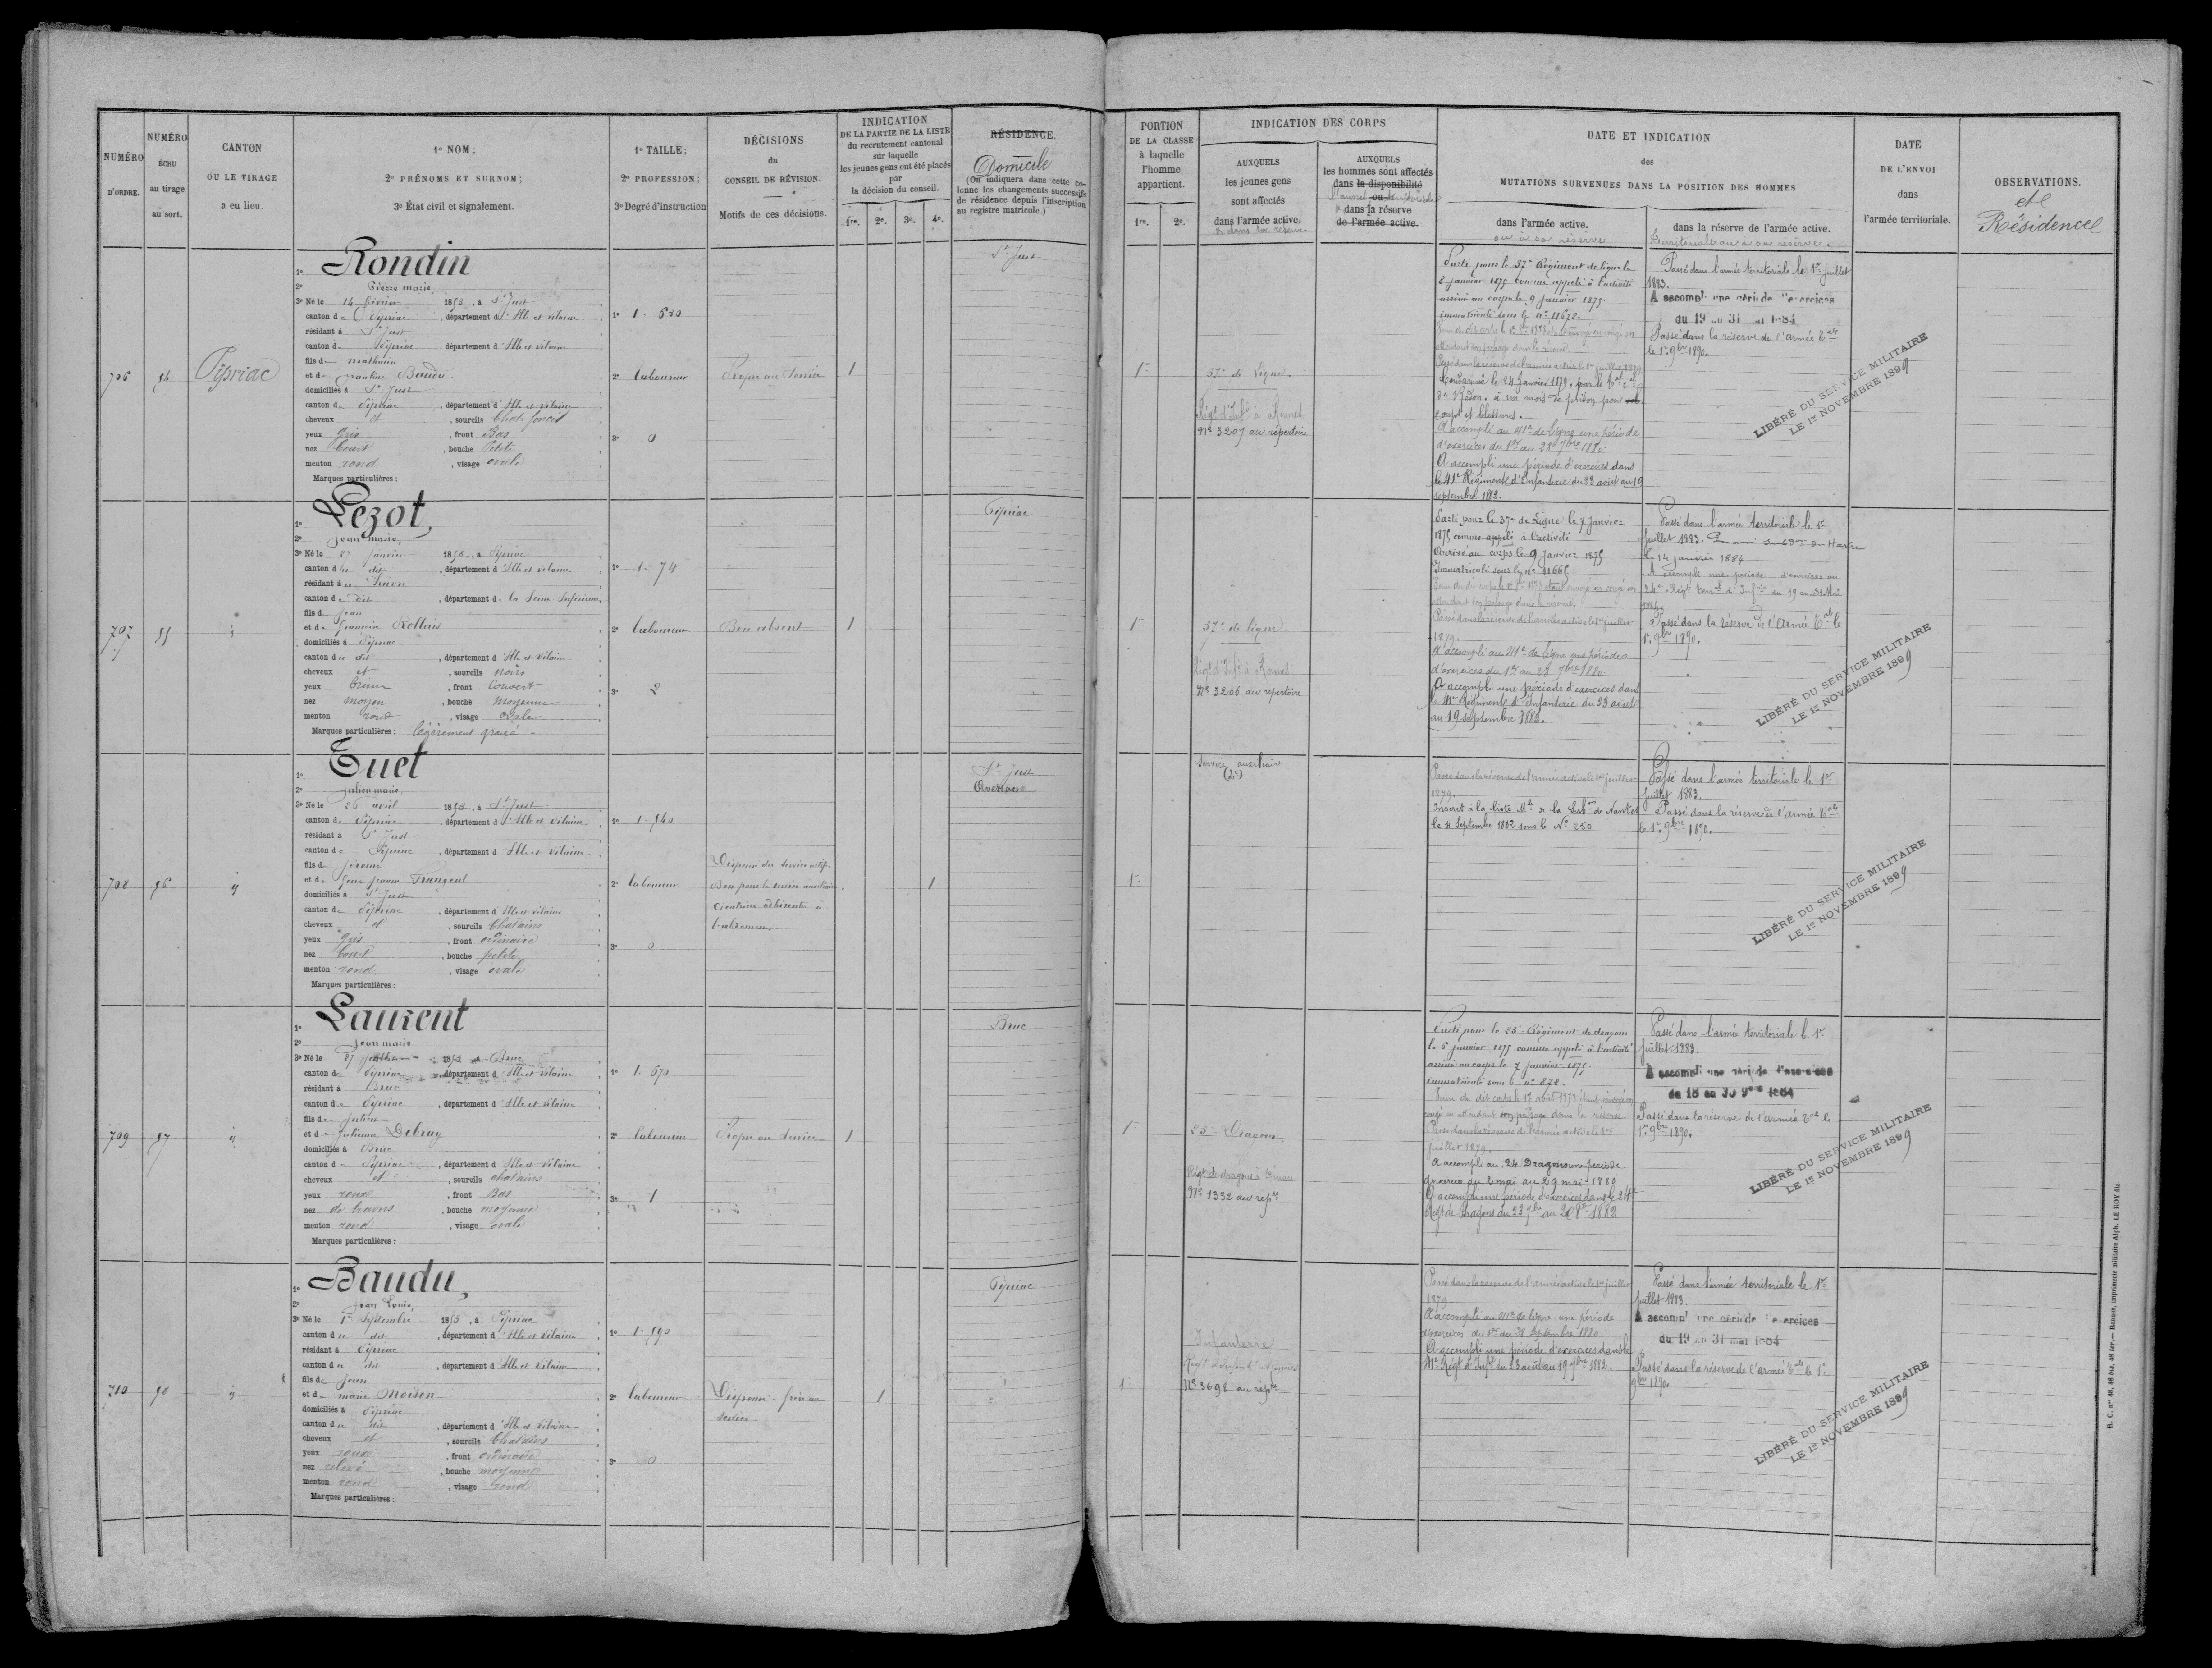 NUMÉRO D'ORDRE.
NUMÉRO ÉCHU au tirage au sort.
CANTON OU LE TIRAGE a eu lieu.
1º NOM;
2º PRÉNOMS ET SURNOM;
3º État civil et signalement.
1º TAILLE;
2º PROFESSION;
3º Degré d'instruction
DÉCISIONS
du
CONSEIL DE RÉVISION.
Motifs de ces décisions.
INDICATION
DE LA PARTIE DE LA LISTE
du recrutement cantonal
sur laquelle
les jeunes gens ont été placés
par
la décision du conseil.
1re. 2e. 3e. 4e.
RÉSIDENCE.
Domicile
(On indiquera dans cette co-
lonne les changements successifs
de résidence depuis l'inscription
au registre matricule.)
PORTION
DE LA CLASSE
à laquelle
l'homme
appartient.
1re. 2e.
INDICATION DES CORPS
AUXQUELS
les jeunes gens
sont affectés
dans l'armée active.
& dans sa réserve
AUXQUELS
les hommes sont affectés
dans la disponibilité
ou
dans la réserve
de l'armée active.
DATE ET INDICATION
des
MUTATIONS SURVENUES DANS LA POSITION DES HOMMES
dans l'armée active.
ou à sa réserve
dans la réserve de l'armée active.
Territoriale ou à sa réserve.
DATE
DE L'ENVOI
dans
l'armée territoriale.
OBSERVATIONS.
et
Résidence
706
Pipriac
1º Rondin
2º Pierre marie
3º Né le 14 février 1853, à St Just
canton de Pipriac, département d'Ille et Vilaine
résidant à St Just
canton de Pipriac, département d'Ille et Vilaine
fils de mathurin
et de Baudu
domiciliés à St Just
canton de Pipriac, département d'Ille et Vilaine
cheveux et, sourcils Chat. foncés
yeux Gris, front Bas
nez Court, bouche Petite
menton rond, visage ovale
Marques particulières:
1º 1. 630
2º laboureur
3º 0
Propre au Service
1
St Just
1
37e de Ligne.
Régt d'Inf. à Rennes
Nº 3207 au répertoire
Parti pour le 37e Régiment de ligne le
8 janvier 1875 comme appelé à l'activité
arrivé au corps le 9 janvier 1875.
immatriculé sous le nº 11672.
Passé dans la réserve de l'armée active le 1er juillet 1879
Condamné le 24 Janvier 1879, par le
de Redon, à un mois de prison pour
coups et blessures.
A accompli au 41e de Ligne une période
d'exercices du 1er au 28 7bre 1880
A accompli une période d'exercices dans
le 41e Régiment d'Infanterie du 23 août au 19
septembre 1882.
Passé dans l'armée territoriale le 1er Juillet
1883.
A accompli une période d'exercices
du 19 au 31 mai 1884
Passé dans la réserve de l'armée Tale
le 1er 9bre 1890.
LIBÉRÉ DU SERVICE MILITAIRE
LE 1er NOVEMBRE 1899
707
55
1º Lezot,
2º Jean marie,
3º Né le 27 janvier 1853, à Pipriac
canton du dit, département d'Ille et Vilaine
résidant à
canton du dit, département de la Seine Inférieure
fils de Jean
et de françoise
domiciliés à Pipriac
canton du dit, département d'Ille et Vilaine
cheveux et, sourcils noirs
yeux bruns, front Couvert
nez moyen, bouche Moyenne
menton rond, visage ovale
Marques particulières: légèrement gravé.
1º 1. 74
2º laboureur
3º 2
Bon absent
1
Pipriac
1
37e de ligne.
Régt d'Inf. à Rennes
Nº 3206 au répertoire
Parti pour le 37e de Ligne le 8 janvier
1875 comme appelé à l'activité
Arrivé au corps le 9 janvier 1875
Immatriculé sous le nº 11665
Passé dans la réserve de l'armée active le 1er juillet
1879.
A accompli au 41e de Ligne une période
d'exercices du 1er au 28 7bre 1880.
A accompli une période d'exercices dans
le 41e Régiment d'Infanterie du 23 août
au 19 septembre 1882.
Passé dans l'armée territoriale le 1er
juillet 1883.
le 14 janvier 1884
A accompli une période d'exercices au
24e Régt terrl d'Infrie du 19 au 31 Mai
1884.
Passé dans la réserve de l'Armée Tale le
1er 9bre 1890.
LIBÉRÉ DU SERVICE MILITAIRE
LE 1er NOVEMBRE 1899
708
56
1º Tuet
2º Julien marie,
3º Né le 26 avril 1853, à St Just
canton de Pipriac, département d'Ille et Vilaine
résidant à St Just
canton de Pipriac, département d'Ille et Vilaine
fils de Jérôme
et de
domiciliés à St Just
canton de Pipriac, département d'Ille et Vilaine
cheveux et, sourcils Chatains
yeux Gris, front ordinaire
nez Court, bouche petite
menton rond, visage ovale
Marques particulières:
1º 1. 540
2º laboureur
3º 0
Dispensé du Service actif.
Bon pour le service auxiliaire.
cicatrice adhérente à
l'abdomen.
1
St Just
Avessac
1
Service auxiliaire
(2e)
Passé dans la réserve de l'armée active le 1er juillet
1879.
Inscrit à la liste Mle de la Subon de Nantes
le 11 Septembre 1882 sous le Nº 250
Passé dans l'armée territoriale le 1er
juillet 1883.
Passé dans la réserve de l'armée Tale
le 1er 9bre 1890.
LIBÉRÉ DU SERVICE MILITAIRE
LE 1er NOVEMBRE 1899
709
57
1º Laurent
2º Jean marie
3º Né le 27 1853, à Bruc
canton de Pipriac, département d'Ille et Vilaine
résidant à Bruc
canton de Pipriac, département d'Ille et Vilaine
fils de Julien
et de Julienne Debray
domiciliés à Bruc
canton de Pipriac, département d'Ille et Vilaine
cheveux et, sourcils chatains
yeux roux, front Bas
nez de travers, bouche moyenne
menton rond, visage ovale
Marques particulières:
1º 1. 670
2º laboureur
3º 1
Propre au Service
1
Bruc
1
25e Dragons.
Régt de dragons à Dinan
Nº 1332 au repre
Parti pour le 25e Régiment de dragons
le 5 janvier 1875 comme appelé à l'activité
arrivé au corps le 7 janvier 1875.
immatriculé sous le nº 828.
congé en attendant son passage dans la réserve
Passé dans la réserve de l'armée active le 1er
juillet 1879.
A accompli au 24 Dragons une période
d'exercice du 2 mai au 29 mai 1880
A accompli une période d'exercices dans le 24e
Régt de Dragons du 23 7bre au 20 8bre 1882
Passé dans l'armée territoriale le 1er
juillet 1883.
A accompli une période d'exercices
du 18 au 30 9bre 1884
Passé dans la réserve de l'armée Tale le
1er 9bre 1890.
LIBÉRÉ DU SERVICE MILITAIRE
LE 1er NOVEMBRE 1899
710
1º Baudu,
2º Jean Louis,
3º Né le 1er Septembre 1853, à Pipriac
canton du dit, département d'Ille et Vilaine
résidant à Pipriac
canton du dit, département d'Ille et Vilaine
fils de Jean
et de marie Moison
domiciliés à Pipriac
canton du dit, département d'Ille et Vilaine
cheveux et, sourcils Chatains
yeux roux, front ordinaire
nez relevé, bouche moyenne
menton rond, visage rond
Marques particulières:
1º 1. 590
2º laboureur
3º 0
Dispensé frère au
service.
1
Pipriac
1
Infanterie
Nº 3698 au repre
Passé dans la réserve de l'armée active le 1er juillet
1879.
A accompli au 41e de ligne une période
d'exercices du 1er au 28 Septembre 1880
A accompli une période d'exercices dans le
41e Régt d'Infie du 23 août au 19 7bre 1882.
Passé dans l'armée territoriale le 1er
juillet 1883.
A accompli une période d'exercices
du 19 au 31 mai 1884
Passé dans la réserve de l'armée Tale le 1er
9bre 1890.
LIBÉRÉ DU SERVICE MILITAIRE
LE 1er NOVEMBRE 1899
B. C. nos 46, 46 bis, 46 ter. — Rennes, imprimerie militaire Alph. LE ROY fils